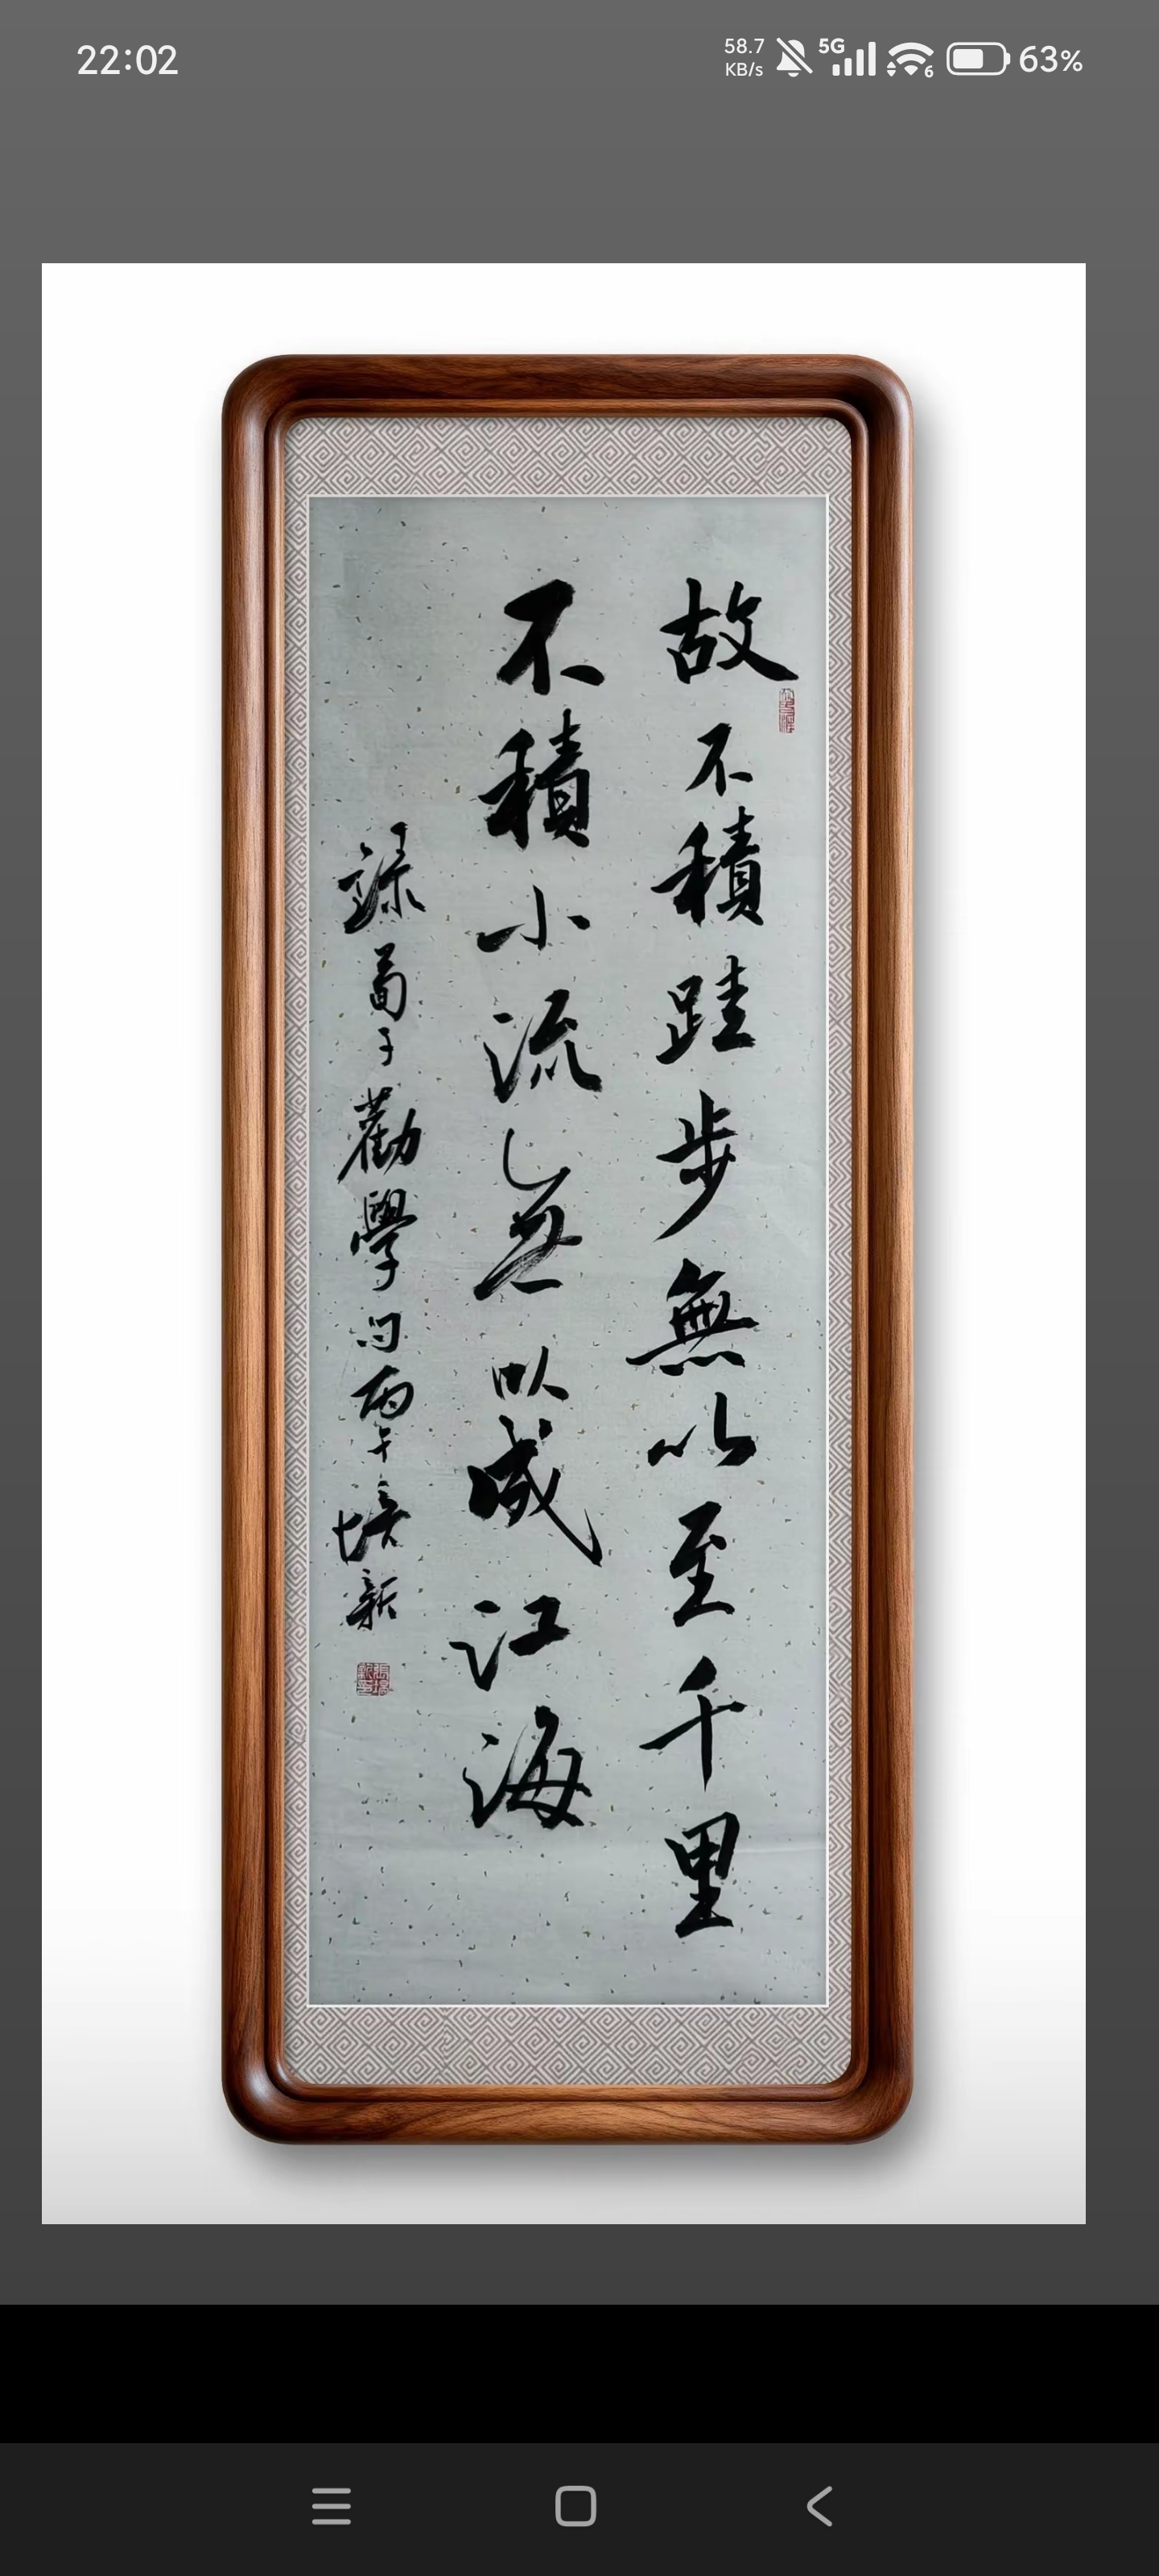 22:02
58.7 KB/s 5G 6 63%
故不積跬步無以至千里
不積小流無以成江海
錄荀子勸學句丙午培新